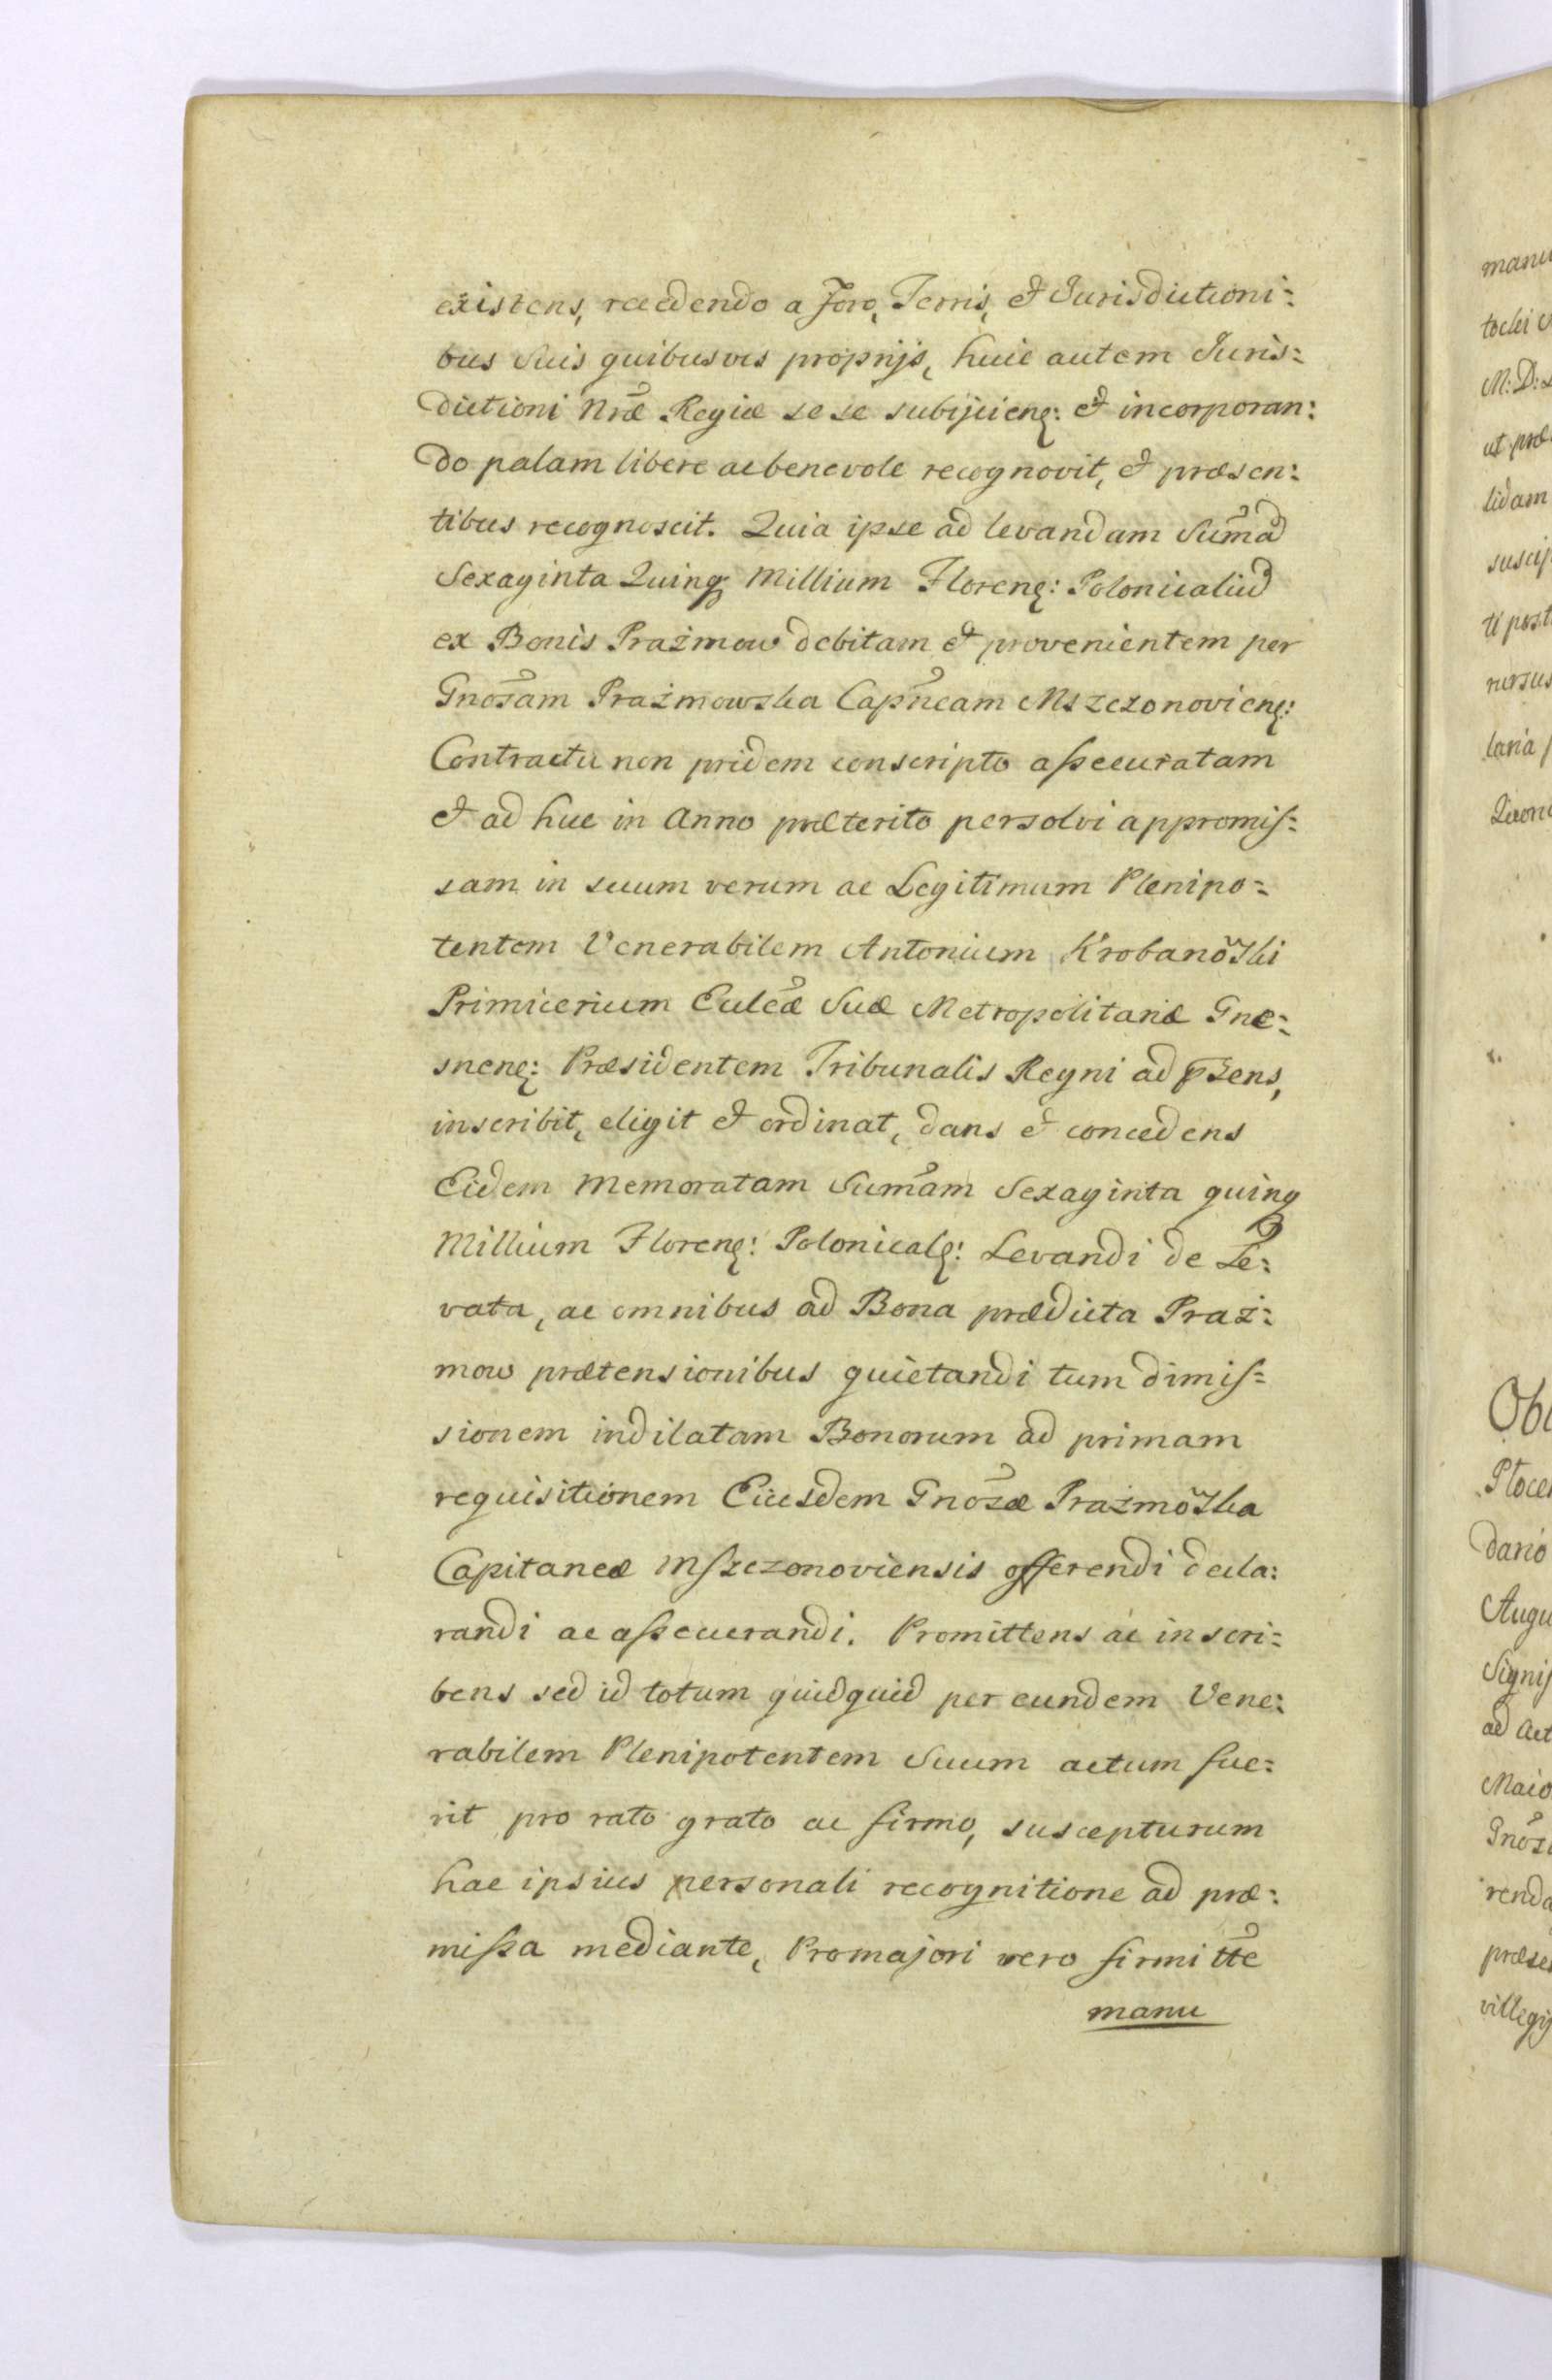 existens, recedendo a Foro, Terris, et Jurisdictioni:
bus Suis quibusvis proprijs, huic autem Juris:
dictioni Nræ Regiæ sese subijcieng: et incorporan:
do palam libere ac benevole recognovit, et præsen:
tibus recognoscit. Quia ipse ad levandam Sum̃a
Sexaginta Quinq Millium Floreng: Polonicaliu
ex Bonis Prażmow debitam et provenientem per
Gnosam Prażmowska Capneam Mszczonovieng:
Contractu non pridem conscripto assecuratam
et ad huc in Anno præterito persolvi appromis:
sam in suum verum ac Legitimum Plenipo:
tentem Venerabilem Antonium Krobanoski
Primicerium Eccleæ Suæ Metropolitanæ Gne:
sneng: Præsidentem Tribunalis Regni ad p̃sens,
inscribit, eligit et ordinat, dans et concedens
Eidem Memoratam Sum̃am Sexaginta quinq
Millium Floreng: Polonicalg: Levandi de Le:
vata, ac omnibus ad Bona prædicta Praż:
mow prætensionibus quietandi tum dimis:
sionem indilatam Bonorum ad primam
requisitionem Eiusdem Gnosæ Prażmoska
Capitaneæ Mszczonoviensis offerendi decla:
randi ac assecurandi. Promittens ac inscri:
bens sed id totum quidquid per eundem Vene:
rabilem Plenipotentem Suum actum fue:
rit pro rato grato ac firmo, suscepturum
hac ipsius personali recognitione ad præ:
missa mediante, Pro majori vero firmitte
manu